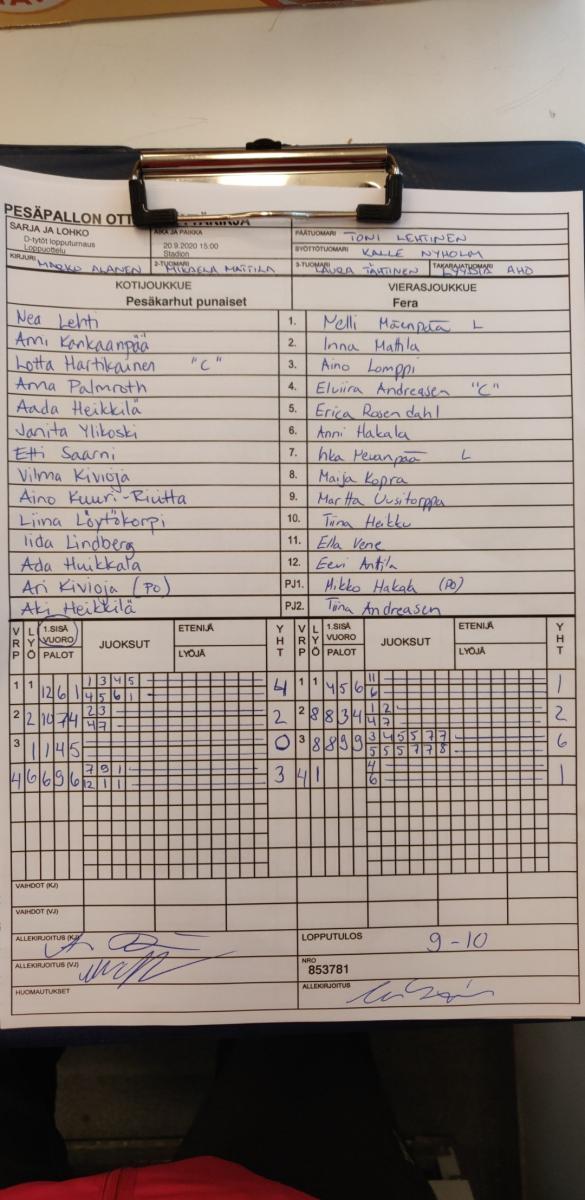 PESÄPALLON OTT
SARJA JA LOHKO
D-tytöt lopputurnaus
Loppuottelu
AIKA JA PAIKKA
20.9.2020 15:00
Stadion
PÄÄTUOMARI TONI LEHTINEN
SYÖTTÖTUOMARI KALLE NYHOLM
KIRJURI MARKO ALANEN 2-TUOMARI MIKAELA MATTILA 3-TUOMARI LAURA TÄHTINEN TAKARAJATUOMARI AHO
KOTIJOUKKUE VIERASJOUKKUE
Pesäkarhut punaiset Fera
Nea Lehti 1. Nelli Mäenpää L
Anni Kankaanpää 2. Inna Mattila
Lotta Hartikainen "C" 3. Aino Lomppi
Anna Palmroth 4. Elviira Andreasen "C"
Aada Heikkilä 5. Erica Rosendahl
Janita Ylikoski 6. Anni Hakala
Etti Saarni 7. L
Vilma Kivioja 8. Maija Kopra
Aino Kuuri-Riutta 9. Martta Uusitorppa
Liina Löytökorpi 10. Tiina Heikku
Iida Lindberg 11. Ella Vene
Ada Huikkala 12. Eevi Antila
Ari Kivioja (PO) PJ1. Mikko Hakala (PO)
Aki Heikkilä PJ2. Tiina Andreasen
VRP LYÖ 1.SISÄ VUORO PALOT JUOKSUT ETENIJÄ LYÖJÄ YHT VRP LYÖ 1.SISÄ VUORO PALOT JUOKSUT ETENIJÄ LYÖJÄ YHT
1 1 12 6 1 1 3 4 5 4 1 1 4 5 6 11 1
4 5 6 1 6
2 2 10 7 4 2 3 2 2 8 8 3 4 1 2 2
4 7 4 7
3 1 1 4 5 0 3 8 8 9 9 3 4 5 5 7 7 6
5 5 5 7 7 8
4 6 6 9 6 7 9 1 3 4 1 4 1
12 1 1 6
VAIHDOT (KJ)
VAIHDOT (VJ)
ALLEKIRJOITUS (KJ) LOPPUTULOS 9-10
ALLEKIRJOITUS (VJ) NRO
853781
HUOMAUTUKSET ALLEKIRJOITUS